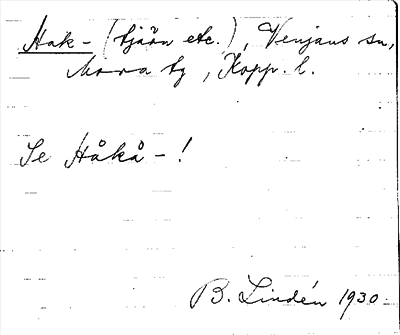 Hak- (tjärn etc.), Venjans sn,
Mora tg, Kopp. l.
Se Håkå-!
B. Lindén 1930.